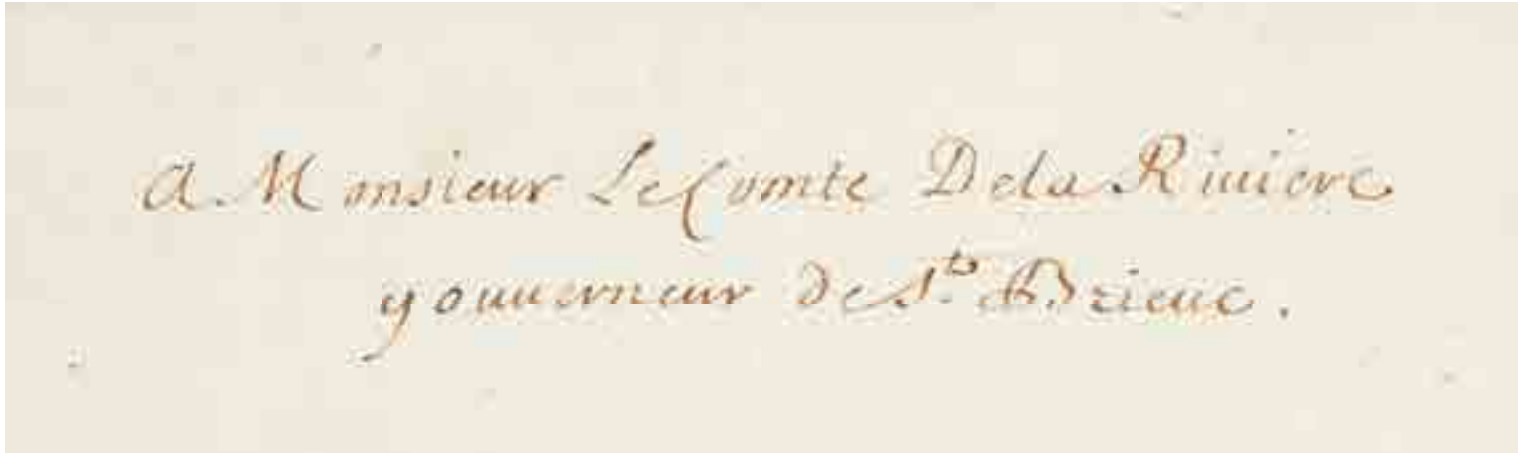 A Monsieur Le Comte De la Riuiere
gouuerneur de St. Brieuc.